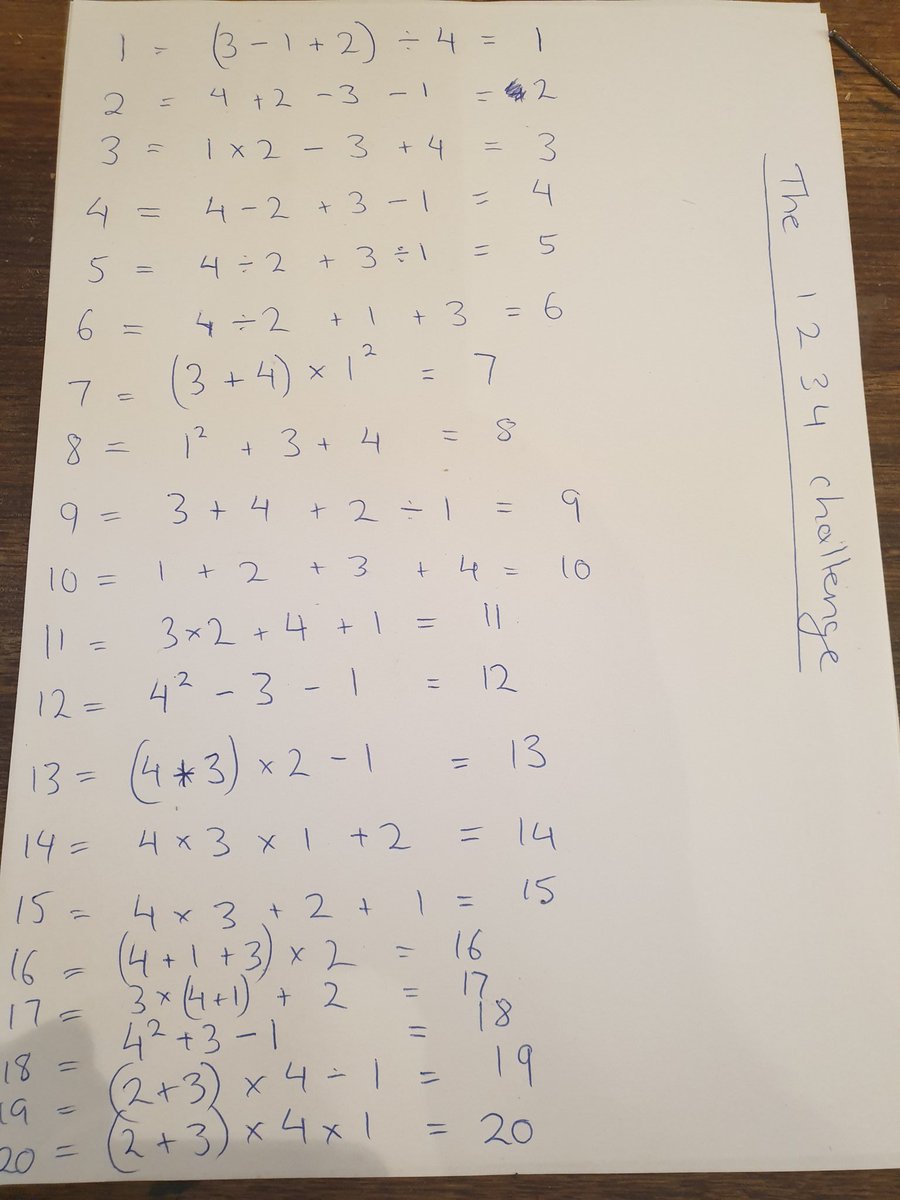 The 1 2 3 4 challenge
1 = (3 - 1 + 2) ÷ 4 = 1
2 = 4 + 2 - 3 - 1 = 2
3 = 1 × 2 - 3 + 4 = 3
4 = 4 - 2 + 3 - 1 = 4
5 = 4 ÷ 2 + 3 ÷ 1 = 5
6 = 4 ÷ 2 + 1 + 3 = 6
7 = (3 + 4) × 1² = 7
8 = 1² + 3 + 4 = 8
9 = 3 + 4 + 2 ÷ 1 = 9
10 = 1 + 2 + 3 + 4 = 10
11 = 3 × 2 + 4 + 1 = 11
12 = 4² - 3 - 1 = 12
13 = (4 + 3) × 2 - 1 = 13
14 = 4 × 3 × 1 + 2 = 14
15 = 4 × 3 + 2 + 1 = 15
16 = (4 + 1 + 3) × 2 = 16
17 = 3 × (4 + 1) + 2 = 17
18 = 4² + 3 - 1 = 18
19 = (2 + 3) × 4 - 1 = 19
20 = (2 + 3) × 4 × 1 = 20